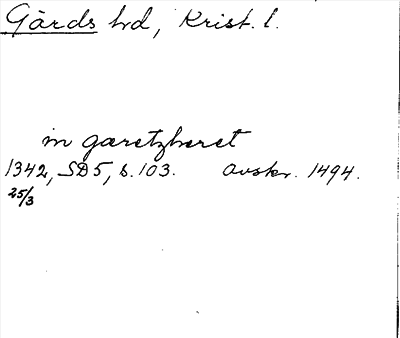 Gärds hd, Krist. l.
in garetzheret
1342, SD5, s. 103. Avskr. 1494.
25/3